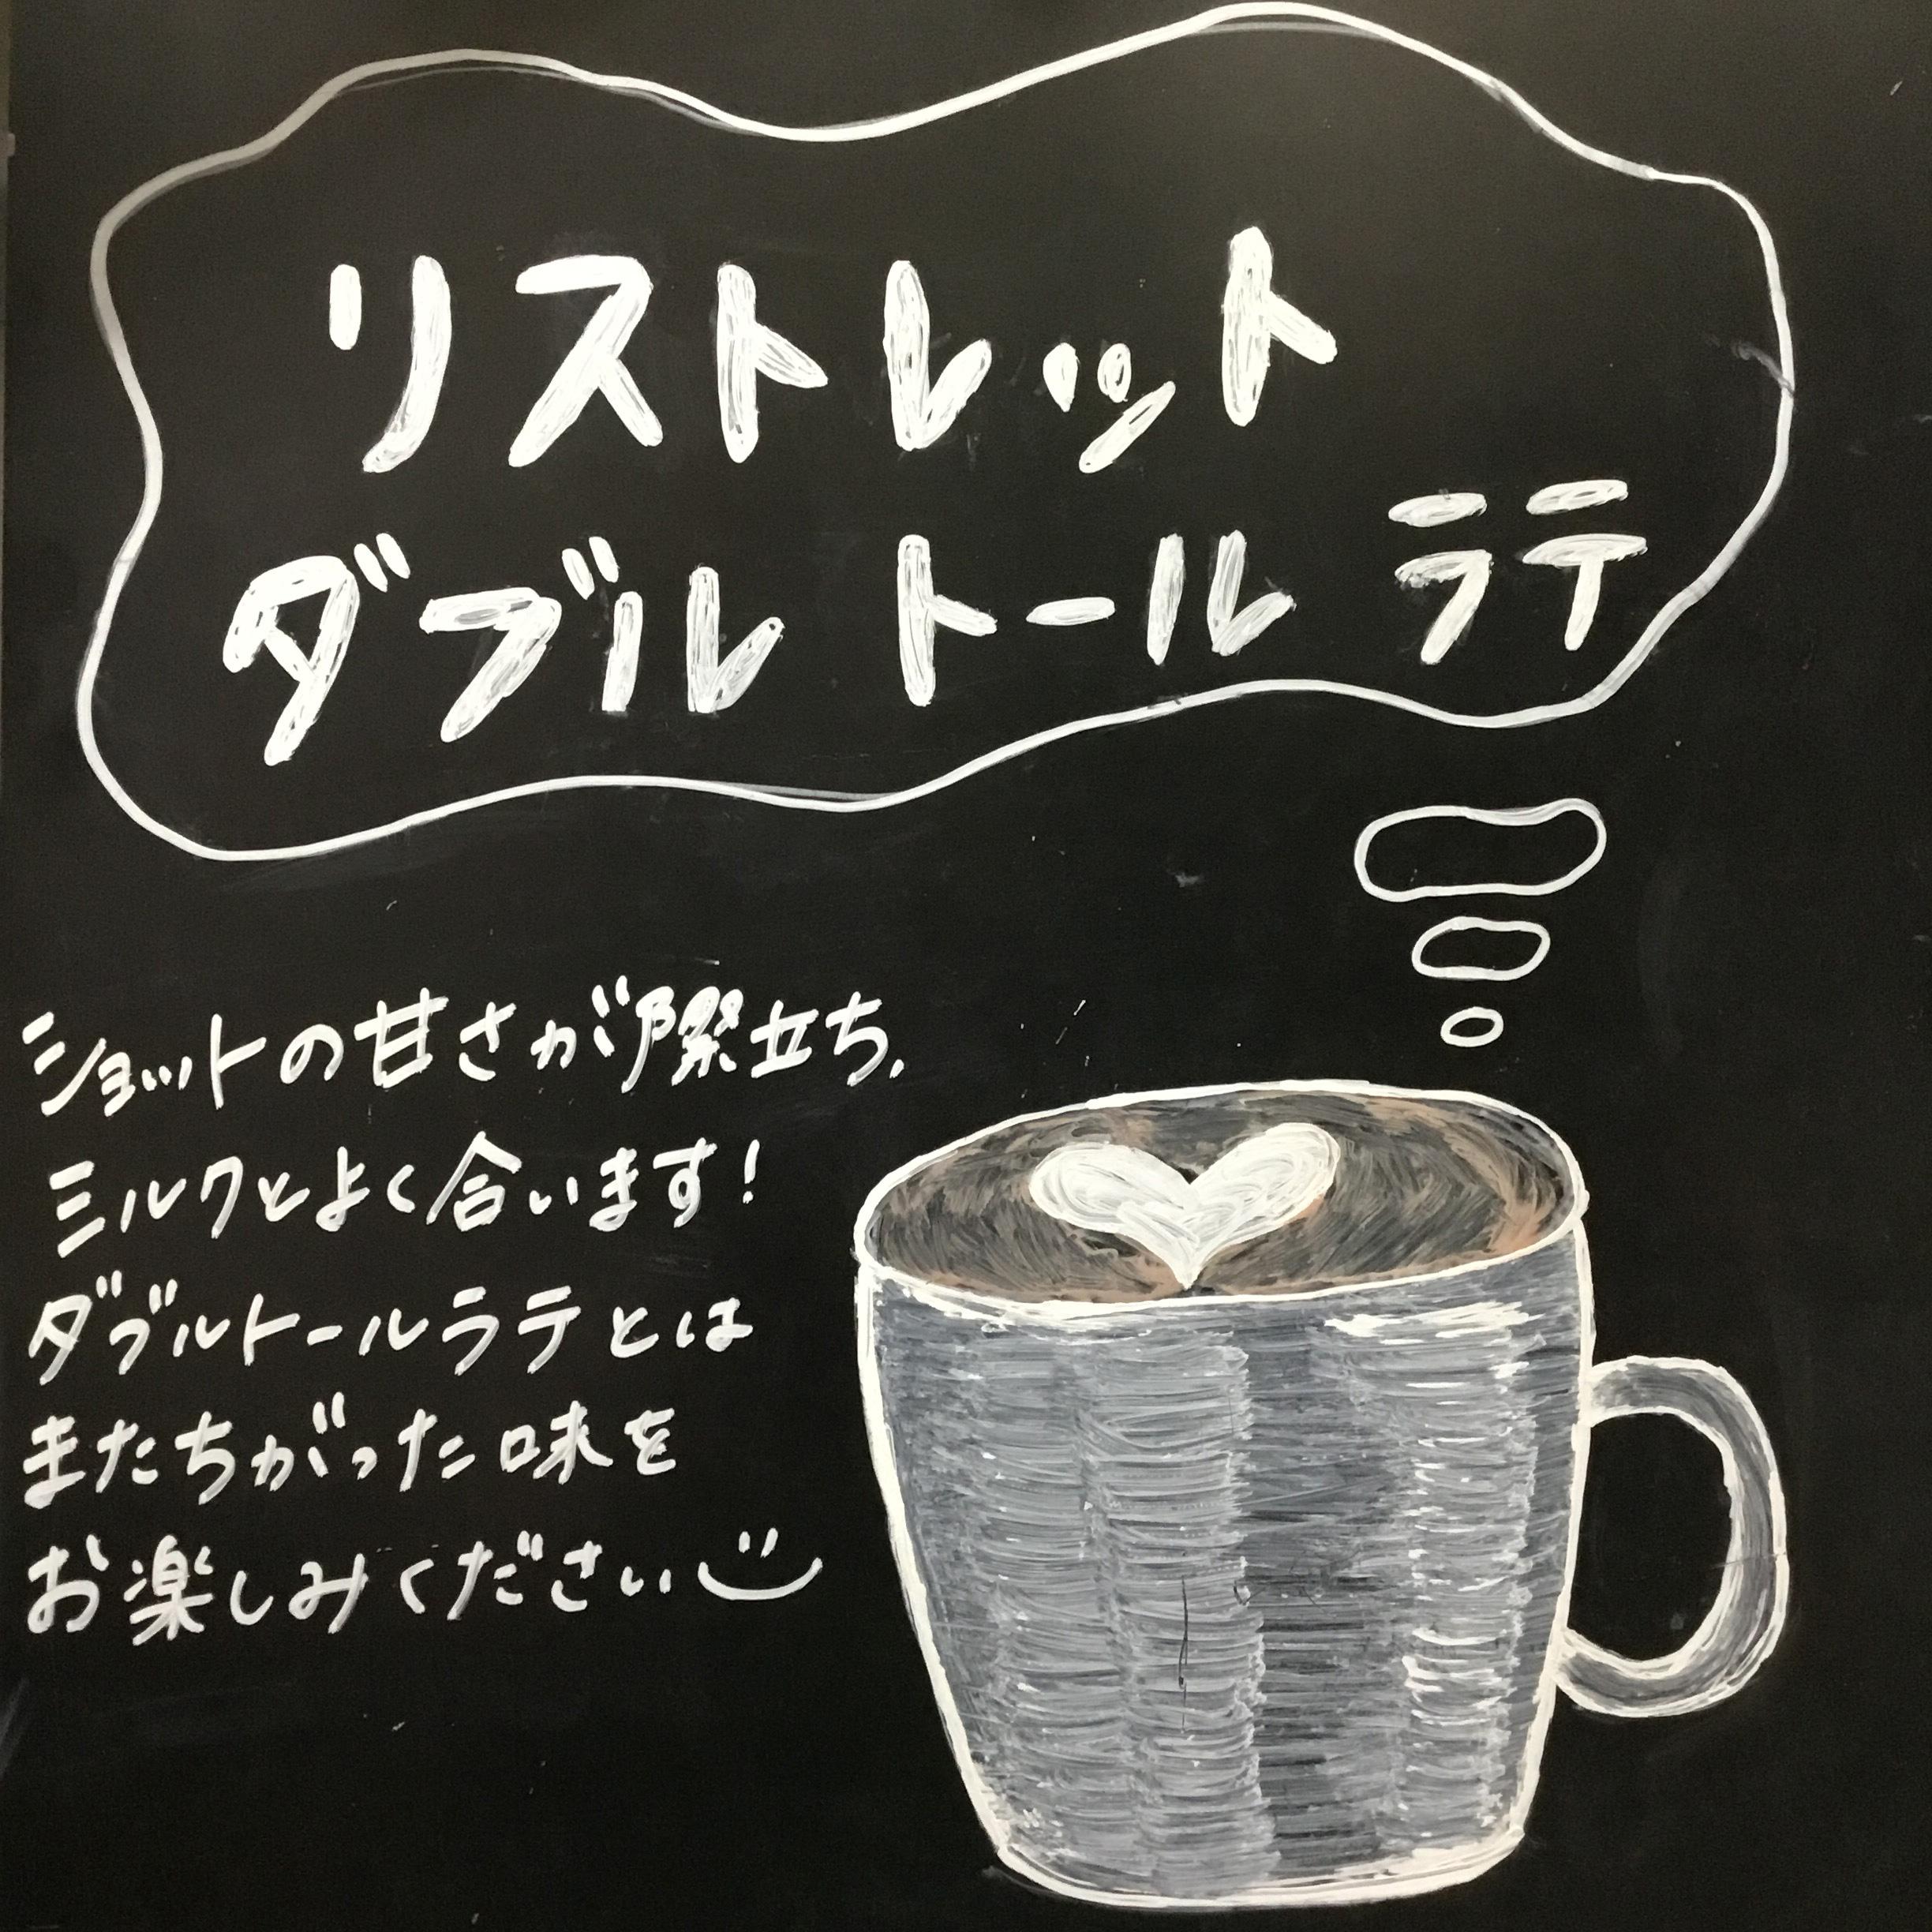 リストレット
ダブル トール ラテ
ショットの甘さが際立ち、
ミルクとよく合います!
ダブルトールラテとは
またちがった味を
お楽しみください